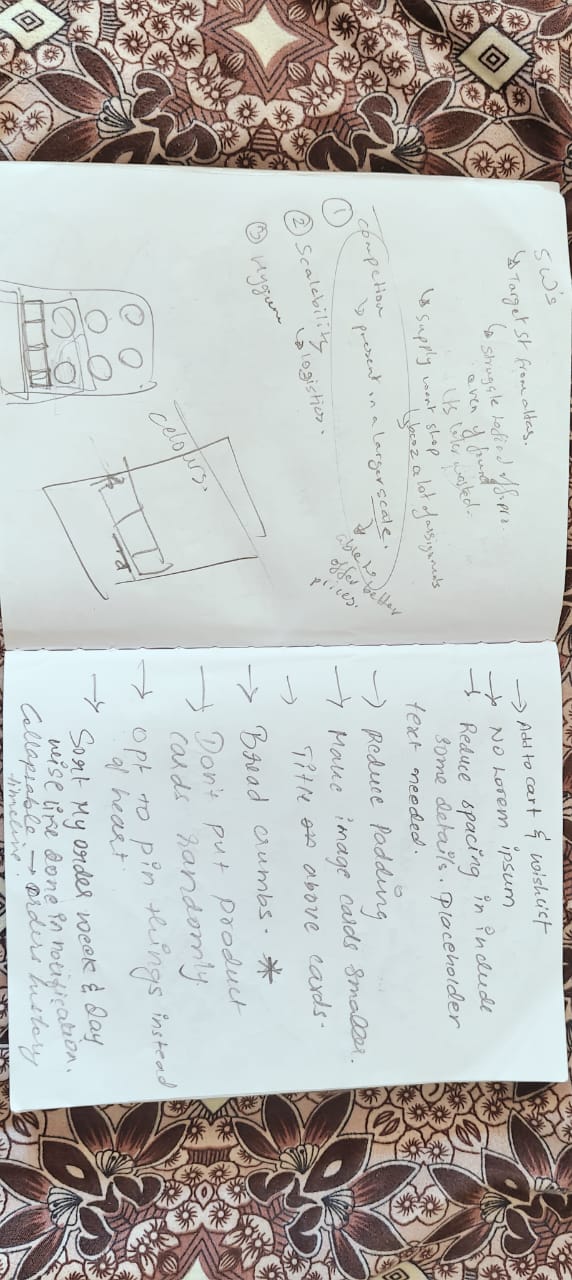 5 W's
↳ Target St from atlas.
↳ Struggle to find offspro.
even if found
its later wasted.
↳ Supply want shop
↳ becoz a lot of assignments
Competion
① ↳ present in a larger scale.
↳ able to
offer better
prices.
② Scalebility
↳ logistics.
③ Hygiene
colours.
→ Add to cart & wishlist
→ No Lorem ipsum
→ Reduce spacing in include
some details. Placeholder
text needed.
→ Reduce Padding
→ Make image cards smaller.
→ Title above cards.
→ Bread crumbs. *
→ Don't put product
cards randomly.
→ Opt to pin things instead
of heart.
→ Sort My order week & day
wise like done in notification.
Collapsable → orders history
timeline.